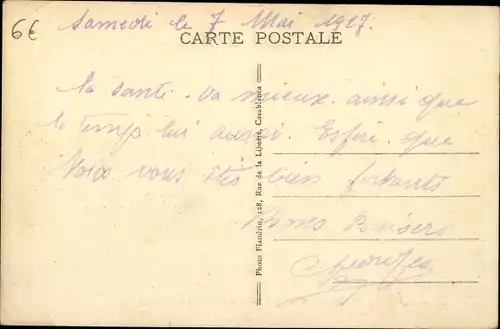 6€
Samedi le 7 Mai 1927.
CARTE POSTALE
la santé. va mieux. ainsi que
le temps lui aussi. Espère. que
vous êtes bien portants
Bons Baisers
Photo Flandrin, 128, Rue de la Liberté, Casablanca